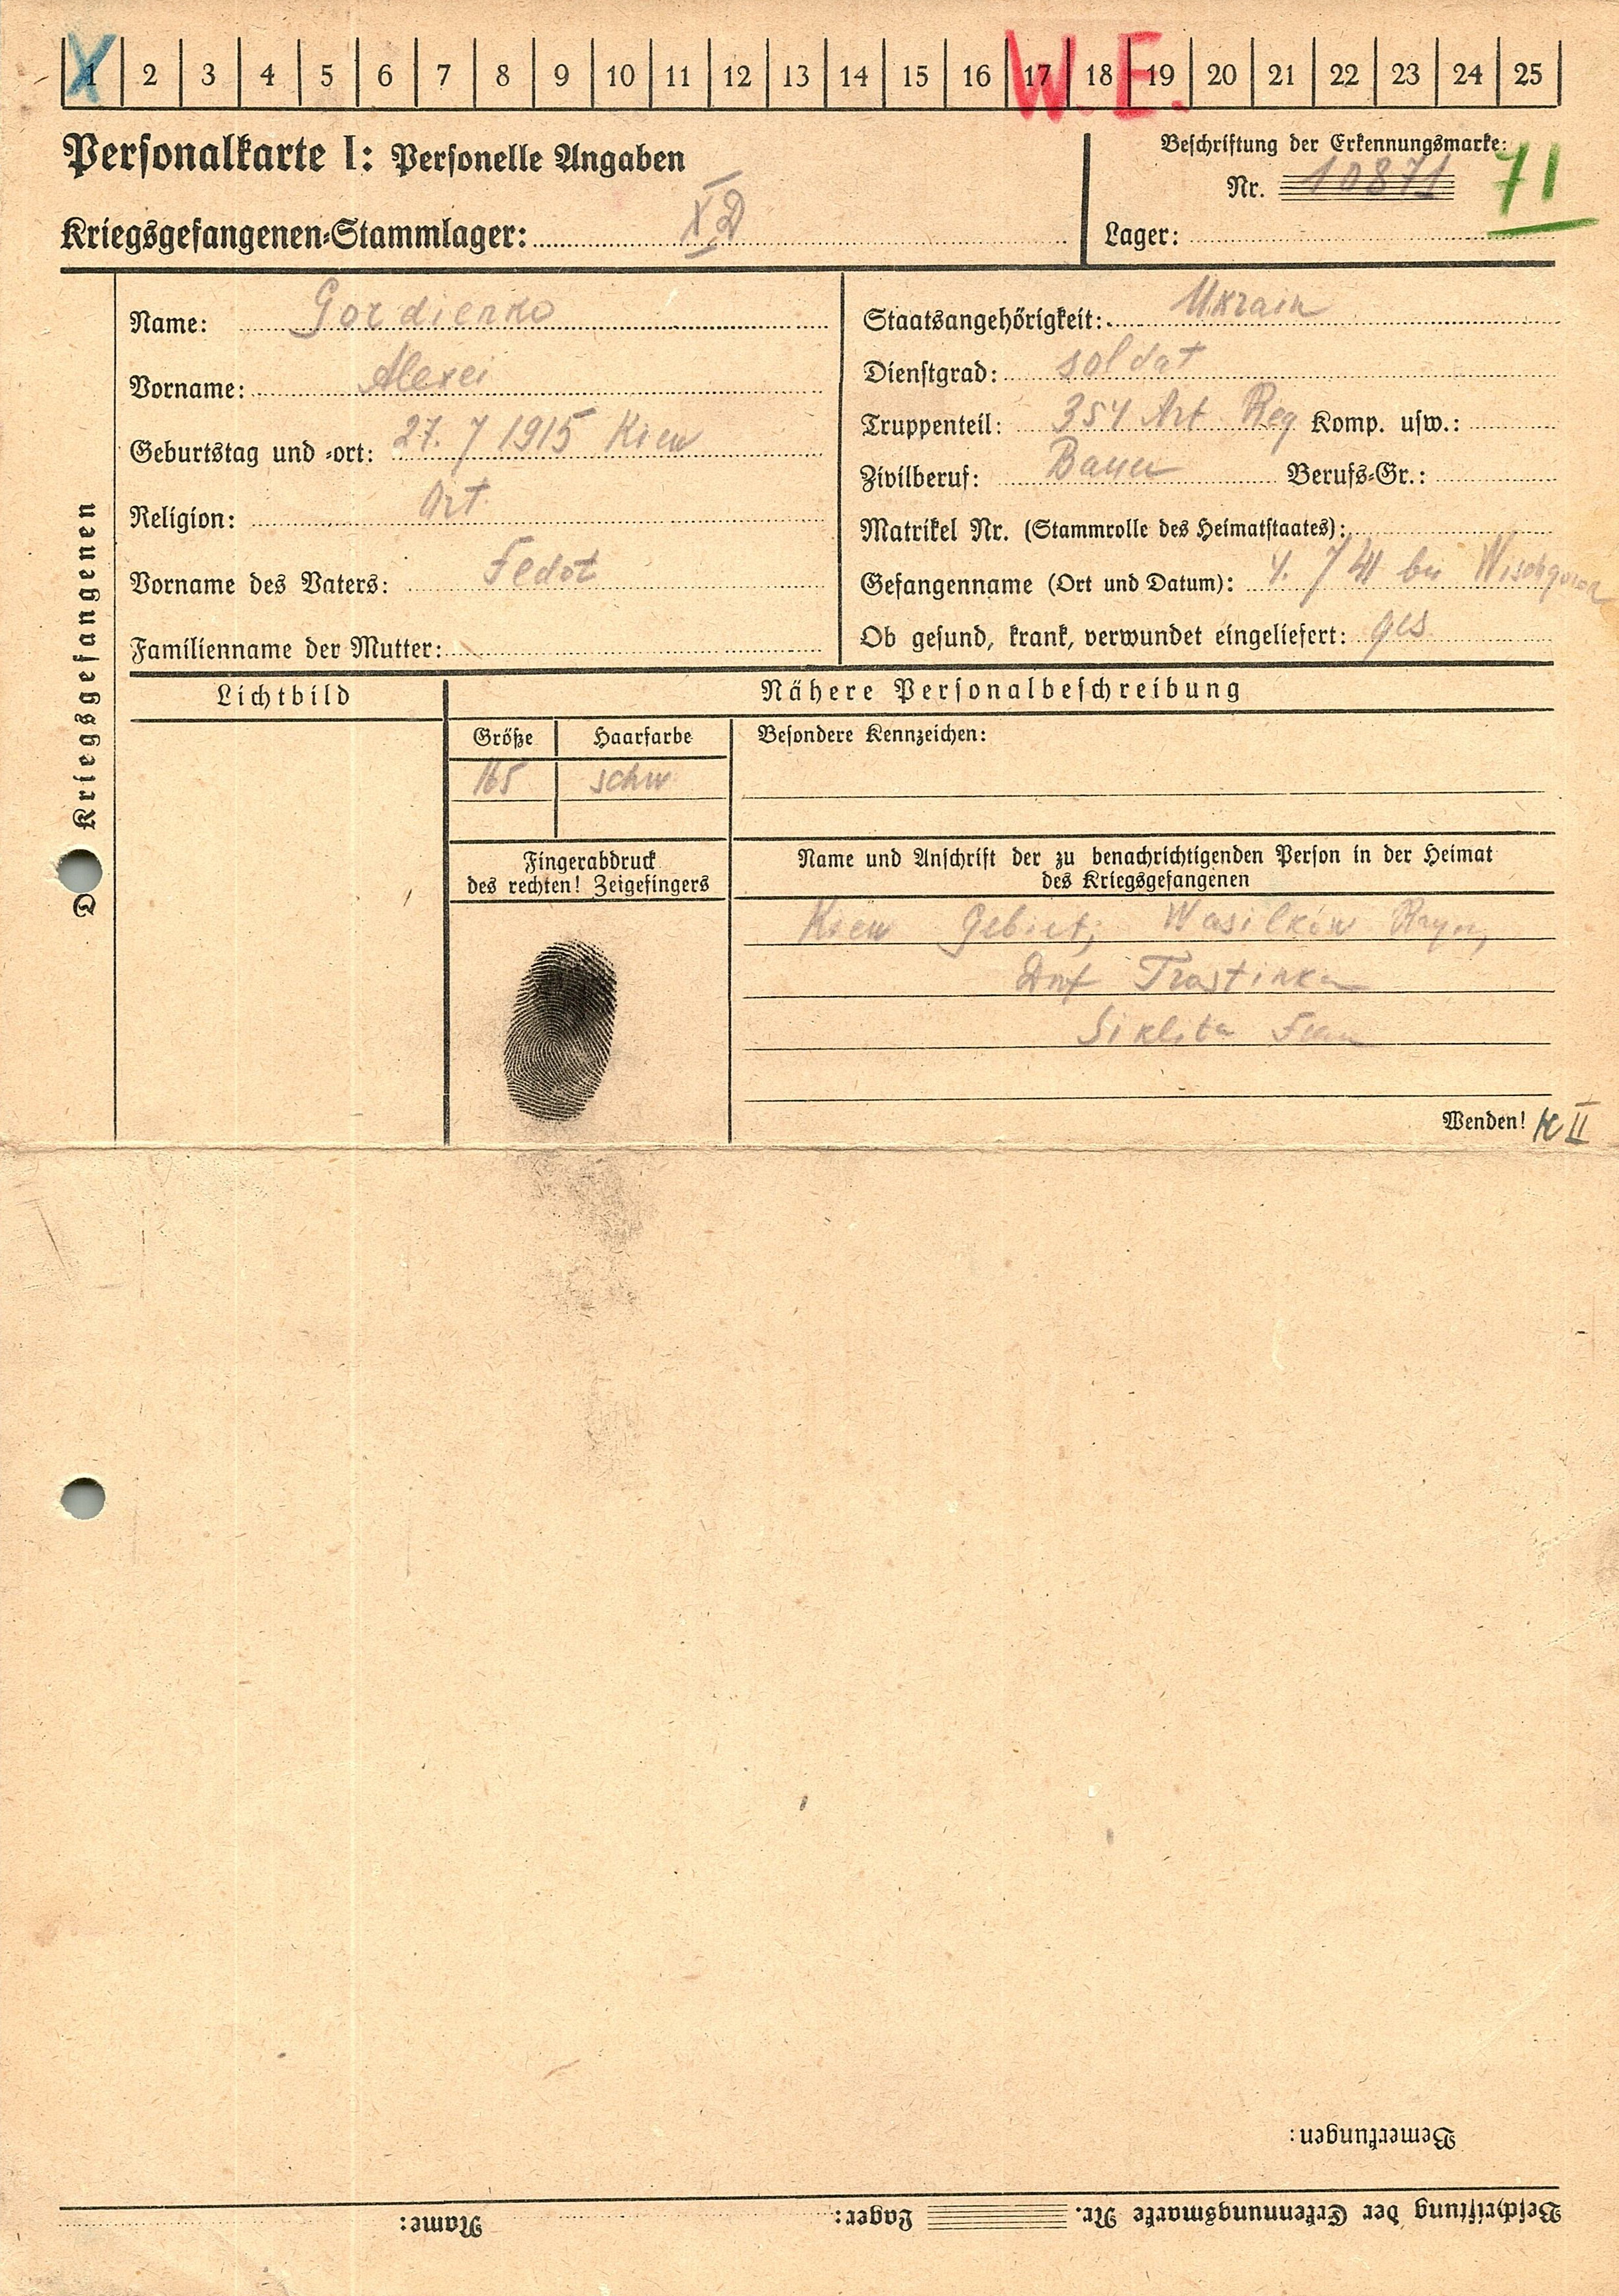 1 2 3 4 5 6 7 8 9 10 11 12 13 14 15 16 17 18 19 20 21 22 23 24 25
X W. E.
Personalkarte I: Personelle Angaben
Beschriftung der Erkennungsmarke:
Nr. 10871 71
Kriegsgefangenen-Stammlager: X D
Lager:
Des Kriegsgefangenen
Name: Gordienko
Vorname: Alexei
Geburtstag und -ort: 27. 7 1915 Kiew
Religion: Ort.
Vorname des Vaters: Fedot
Familienname der Mutter:
Staatsangehörigkeit: Ukrain
Dienstgrad: soldat
Truppenteil: 354 Art Reg Komp. usw.:
Zivilberuf: Bauer Berufs-Gr.:
Matrikel Nr. (Stammrolle des Heimatstaates):
Gefangenname (Ort und Datum): 4. 7 41 bei
Ob gesund, krank, verwundet eingeliefert: ges
Lichtbild
Nähere Personalbeschreibung
Größe Haarfarbe
165 schw
Besondere Kennzeichen:
Fingerabdruck
des rechten! Zeigefingers
Name und Anschrift der zu benachrichtigenden Person in der Heimat
des Kriegsgefangenen
Kiew Gebiet; Wasilków Rayon,
Dorf Trostinka
Wenden! K II
Bemerkungen:
Beschriftung der Erkennungsmarke Nr. Lager: Name: